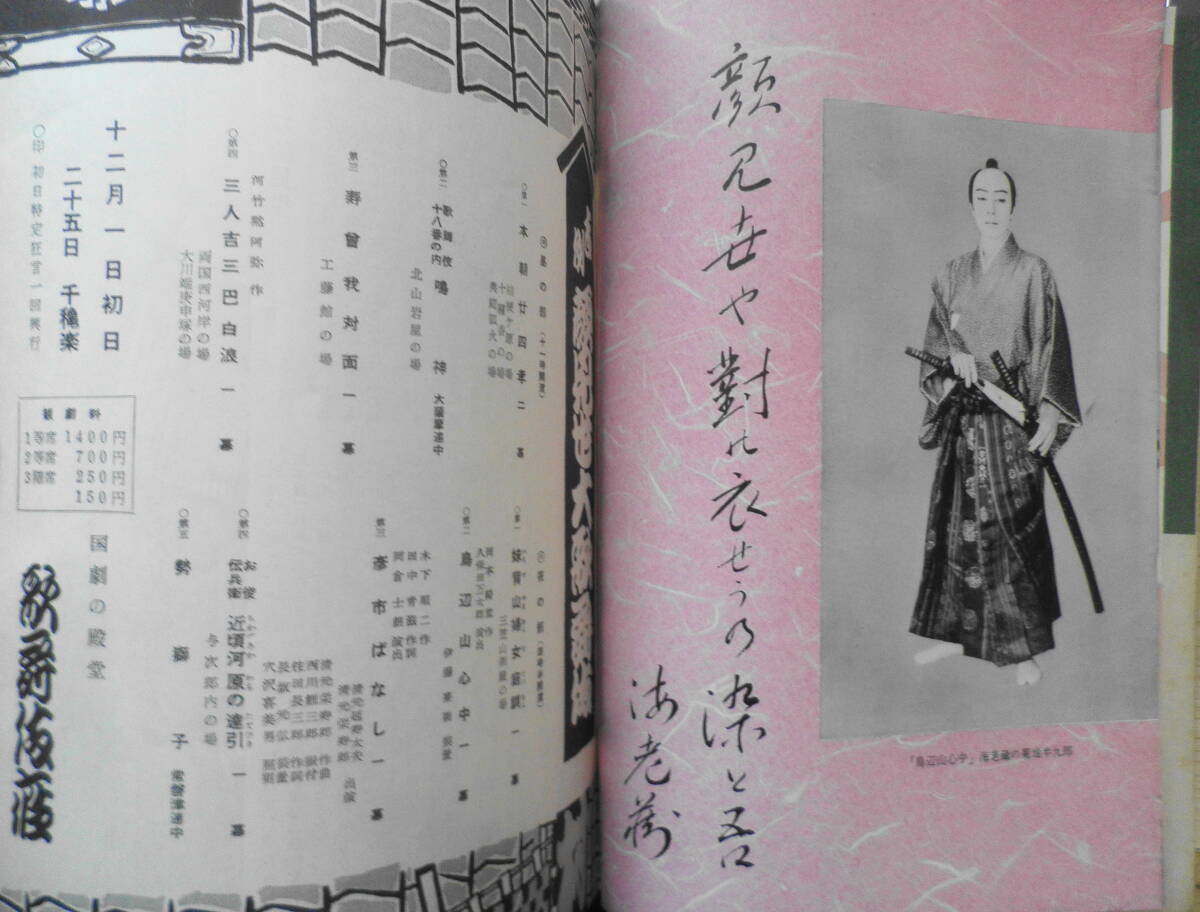 「鳥辺山心中」海老蔵の菊地半九郎
顔見世や對の衣せうの染と吾
海老蔵
⊙昼の部(十一時開演)
○第一 本朝廿四孝 二幕
桔梗ケ原の場
十種香の場
奥庭狐火の場
○第二 歌舞伎十八番の内 鳴神 大薩摩連中
北山岩屋の場
第三 寿曾我対面 一幕
工藤館の場
河竹黙阿弥 作
○第四 三人吉三巴白浪 一幕
両国西河岸の場
大川端庚申塚の場
○第一 妹背山婦女庭訓 一幕
三笠山御殿の場
岡本綺堂 作
○第二 鳥辺山心中 一幕
木下順二 作
第三 彦市ばなし 一幕
清元栄寿郎 作曲
西川鯉三郎 振付
○第四 お俊 伝兵衛 近頃河原の達引 一幕
与次郎内の場
○第五 勢獅子 常磐津連中
十二月一日初日
二十五日 千穐楽
○印 初日特定狂言一回興行
観劇料
1等席 1400円
2等席 700円
3階席 250円
150円
国劇の殿堂
歌舞伎座